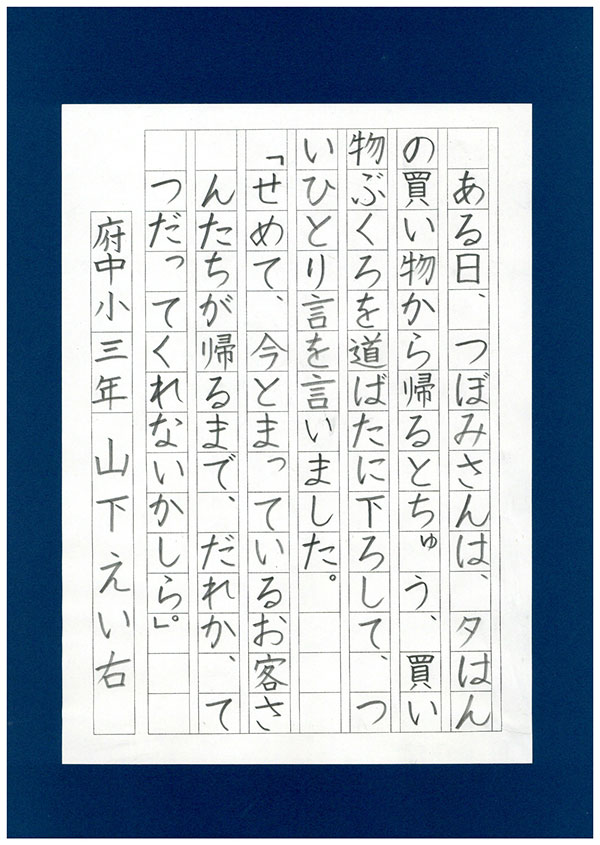 ある日、つぼみさんは、夕はん
の買い物から帰るとちゅう、買い
物ぶくろを道ばたに下ろして、つ
いひとり言を言いました。
「せめて、今とまっているお客さ
んたちが帰るまで、だれか、て
つだってくれないかしら」。
府中小三年 山下えい右